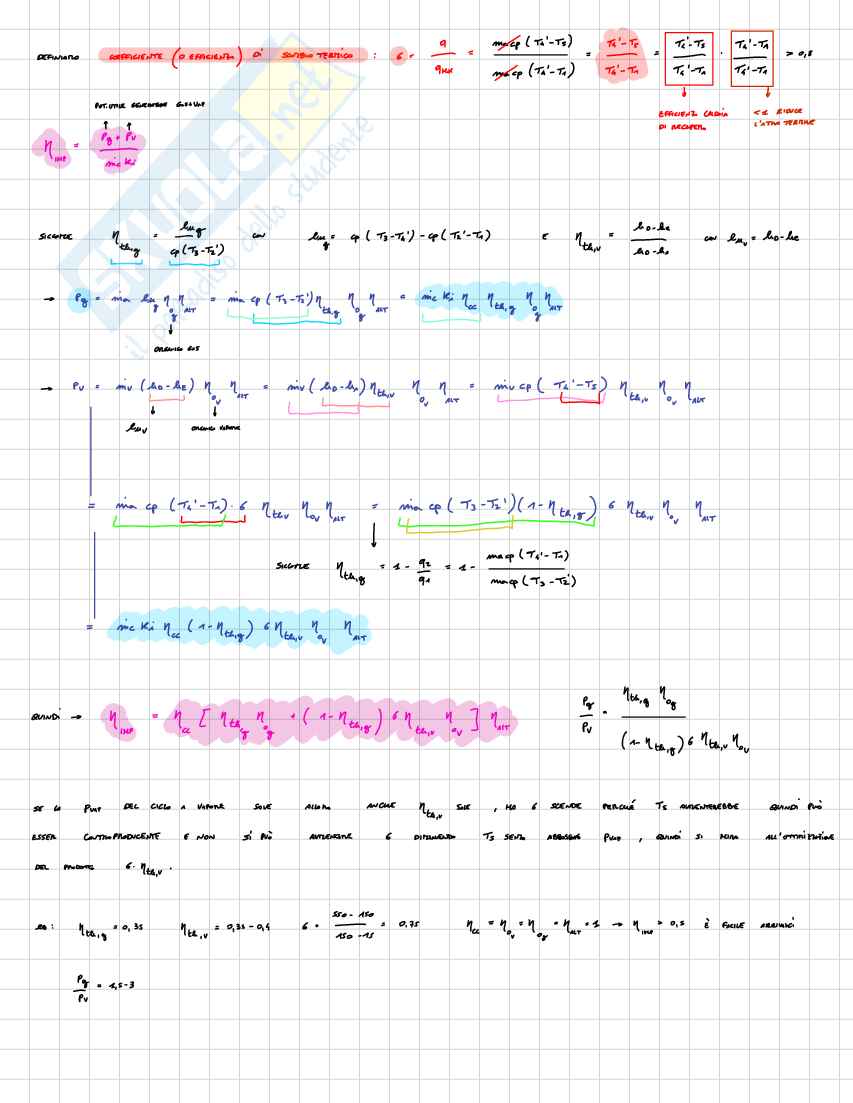 DEFINIAMO COEFFICIENTE (O EFFICIENZA) DI SCAMBIO TERMICO : ε = q / qMAX = ṁa cp (T4'-T5) / ṁa cp (T4'-T1) = T4'-T5 / T4'-T1 = T4'-T5 / T4'-T1 · T4'-T1 / T4'-T1 > 0,8
POT. UTILE GENERATORE
EFFICIENZA CALDAIA DI RECUPERO
<1 RIDUCE
η IMP = Pg + Pv / ṁc Ki
SKUOLA.net
il paradiso dello studente
SICCOME ηth,g = lug / cp(T3-T2') CON lug = cp (T3-T4') - cp (T2'-T1) E ηth,v = hD-hE / hD-hA CON luv = hD-hE
→ Pg = ṁa lug ηog ηALT = ṁa cp (T3-T2') ηth,g ηog ηALT = ṁc Ki ηcc ηth,g ηog ηALT
ORGANICO GAS
→ Pv = ṁv (hD-hE) ηov ηALT = ṁv (hD-hA) ηth,v ηov ηALT = ṁv cp ( T4'-T5) ηth,v ηov ηALT
luv
ORGANICO VAPORE
= ṁa cp (T4'-T1) · ε ηth,v ηov ηALT = ṁa cp ( T3-T2')(1-ηth,g) ε ηth,v ηov ηALT
SICCOME ηth,g = 1 - q2/q1 = 1 - ṁa cp (T4'-T1) / ṁa cp (T3-T2')
= ṁc Ki ηcc (1-ηth,g) ε ηth,v ηov ηALT
QUINDI → η IMP = ηcc [ ηth,g ηog + (1-ηth,g) ε ηth,v ηov ] ηALT
Pg / Pv = ηth,g ηog / (1-ηth,g) ε ηth,v ηov
SE LA DEL CICLO A VAPORE SALE ALLORA ANCHE ηth,v SALE , MA ε SCENDE PERCHÉ T5 AUMENTEREBBE QUINDI PUÒ
ESSER CONTROPRODUCENTE E NON SI PUÒ AUMENTARE ε DIMINUENDO T5 SENZA ABBASSARE , QUINDI SI MIRA ALL'OTTIMIZZAZIONE
DEL PRODOTTO ε · ηth,v .
es: ηth,g = 0,35 ηth,v = 0,35-0,4 ε = 550-150 / 550-15 = 0,75 ηcc = ηov = ηog = ηALT = 1 → η IMP > 0,5 È FACILE ARRIVARCI
Pg / Pv = 1,5-3